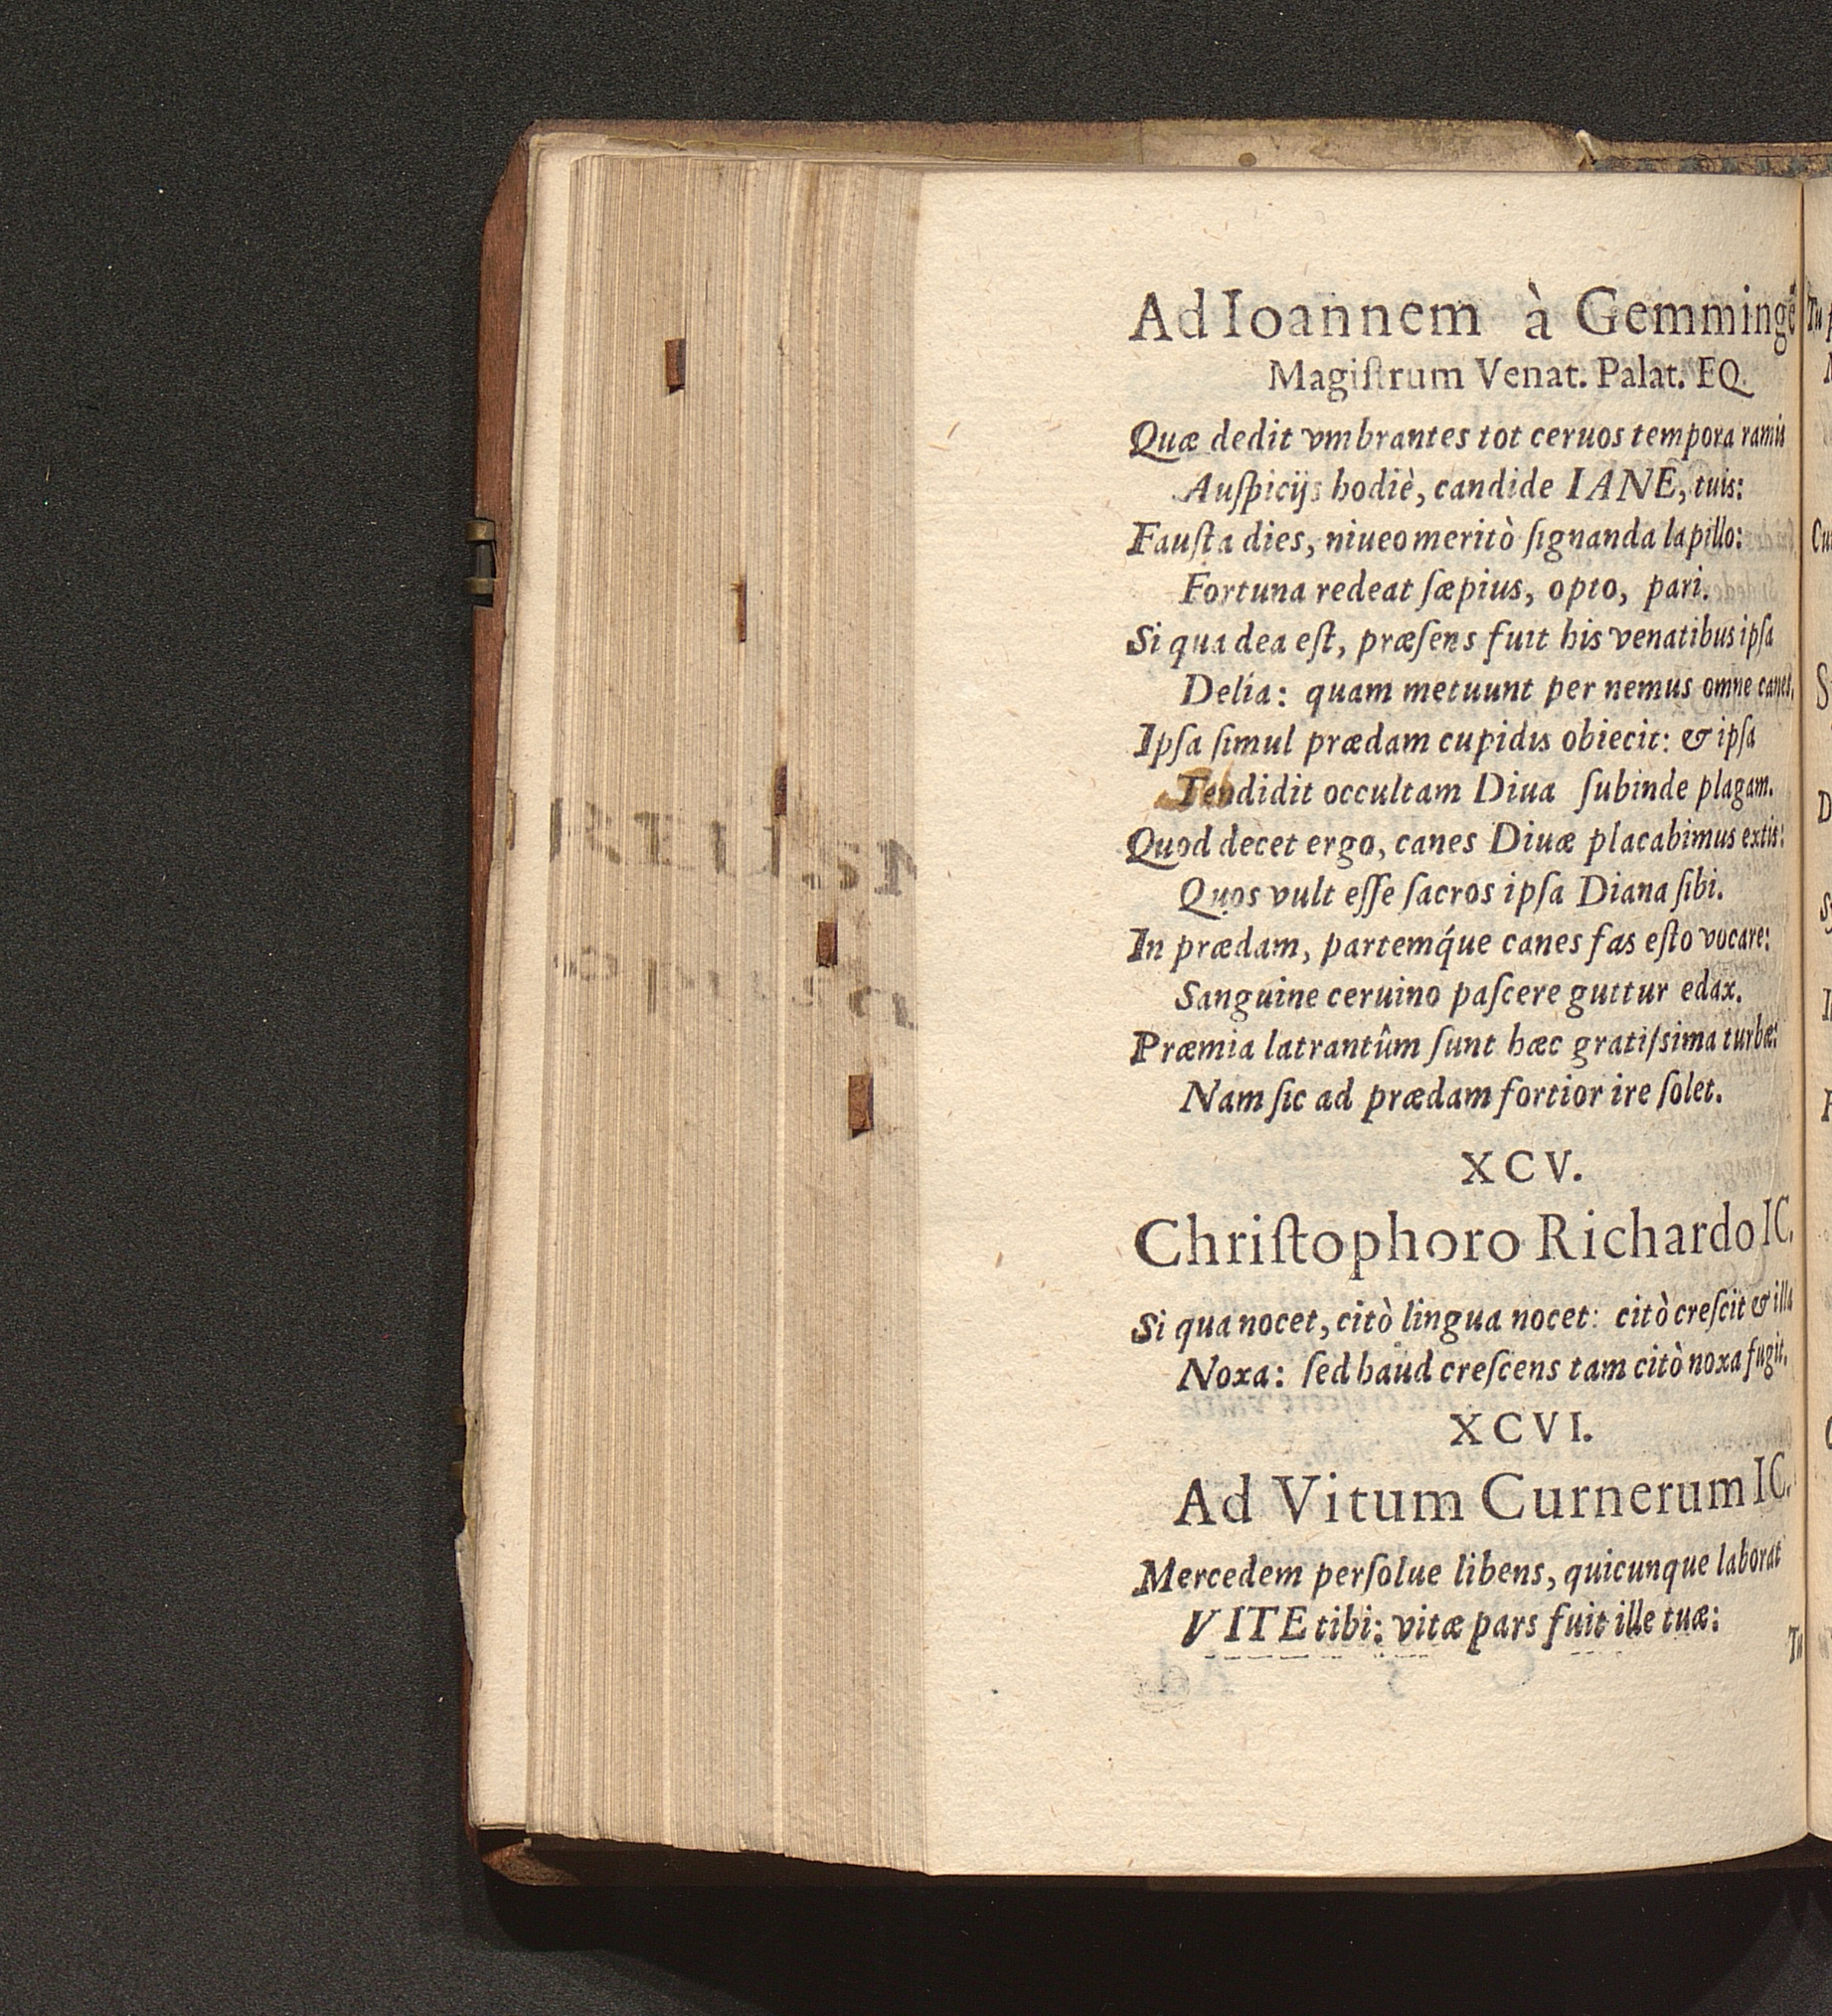 Ad Ioannem à Gemmingẽ
Magiſtrum Venat. Palat. EQ.
Quæ dedit vmbrantes tot ceruos tempora ramis
Auſpicijs hodiè, candide IANE, tuis:
Fauſta dies, niueo meritò ſignanda lapillo:
Fortuna redeat ſæpius, opto, pari.
Si qua dea eſt, præſens fuit his venatibus ipſa
Delia: quam metuunt per nemus omne canes.
Ipſa ſimul prædam cupidis obiecit: & ipſa
Tendidit occultam Diua ſubinde plagam.
Quod decet ergo, canes Diuæ placabimus extis:
Quos vult eſſe ſacros ipſa Diana ſibi.
In prædam, partemq́ue canes fas eſto vocare:
Sanguine ceruino paſcere guttur edax.
Præmia latrantûm ſunt hæc gratiſsima turbæ:
Nam ſic ad prædam fortior ire ſolet.
XCV.
Chriſtophoro Richardo IC.
Si qua nocet, citò lingua nocet: citò creſcit & illa
Noxa: ſed haud creſcens tam citò noxa fugit.
XCVI.
Ad Vitum Curnerum IC.
Mercedem perſolue libens, quicunque laborat
VITE tibi: vitæ pars fuit ille tuæ:
Tu